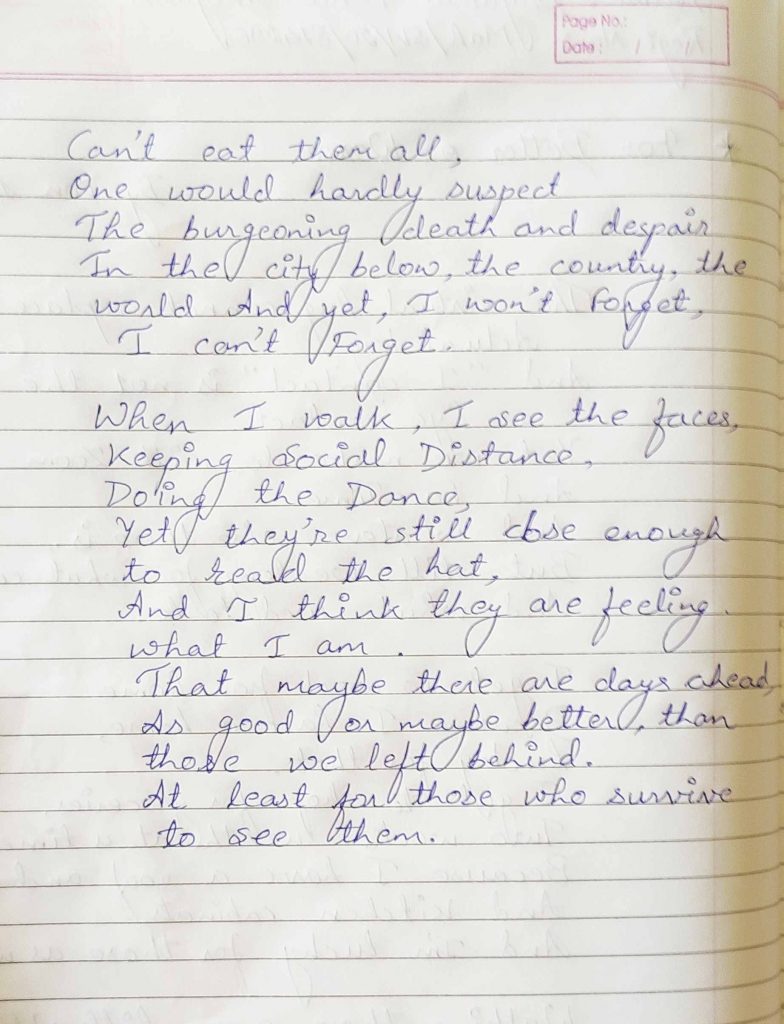 Page No.:
Date: / /
Can't eat them all,
One would hardly suspect
The burgeoning death and despair
In the city below, the country, the
world And yet, I won't Forget,
I can't Forget.
When I walk, I see the faces,
Keeping Social Distance,
Doing the Dance,
Yet they're still close enough
to read the hat,
And I think they are feeling.
what I am.
That maybe there are days ahead,
As good or maybe better, than
those we left behind.
At least for those who survive
to see them.